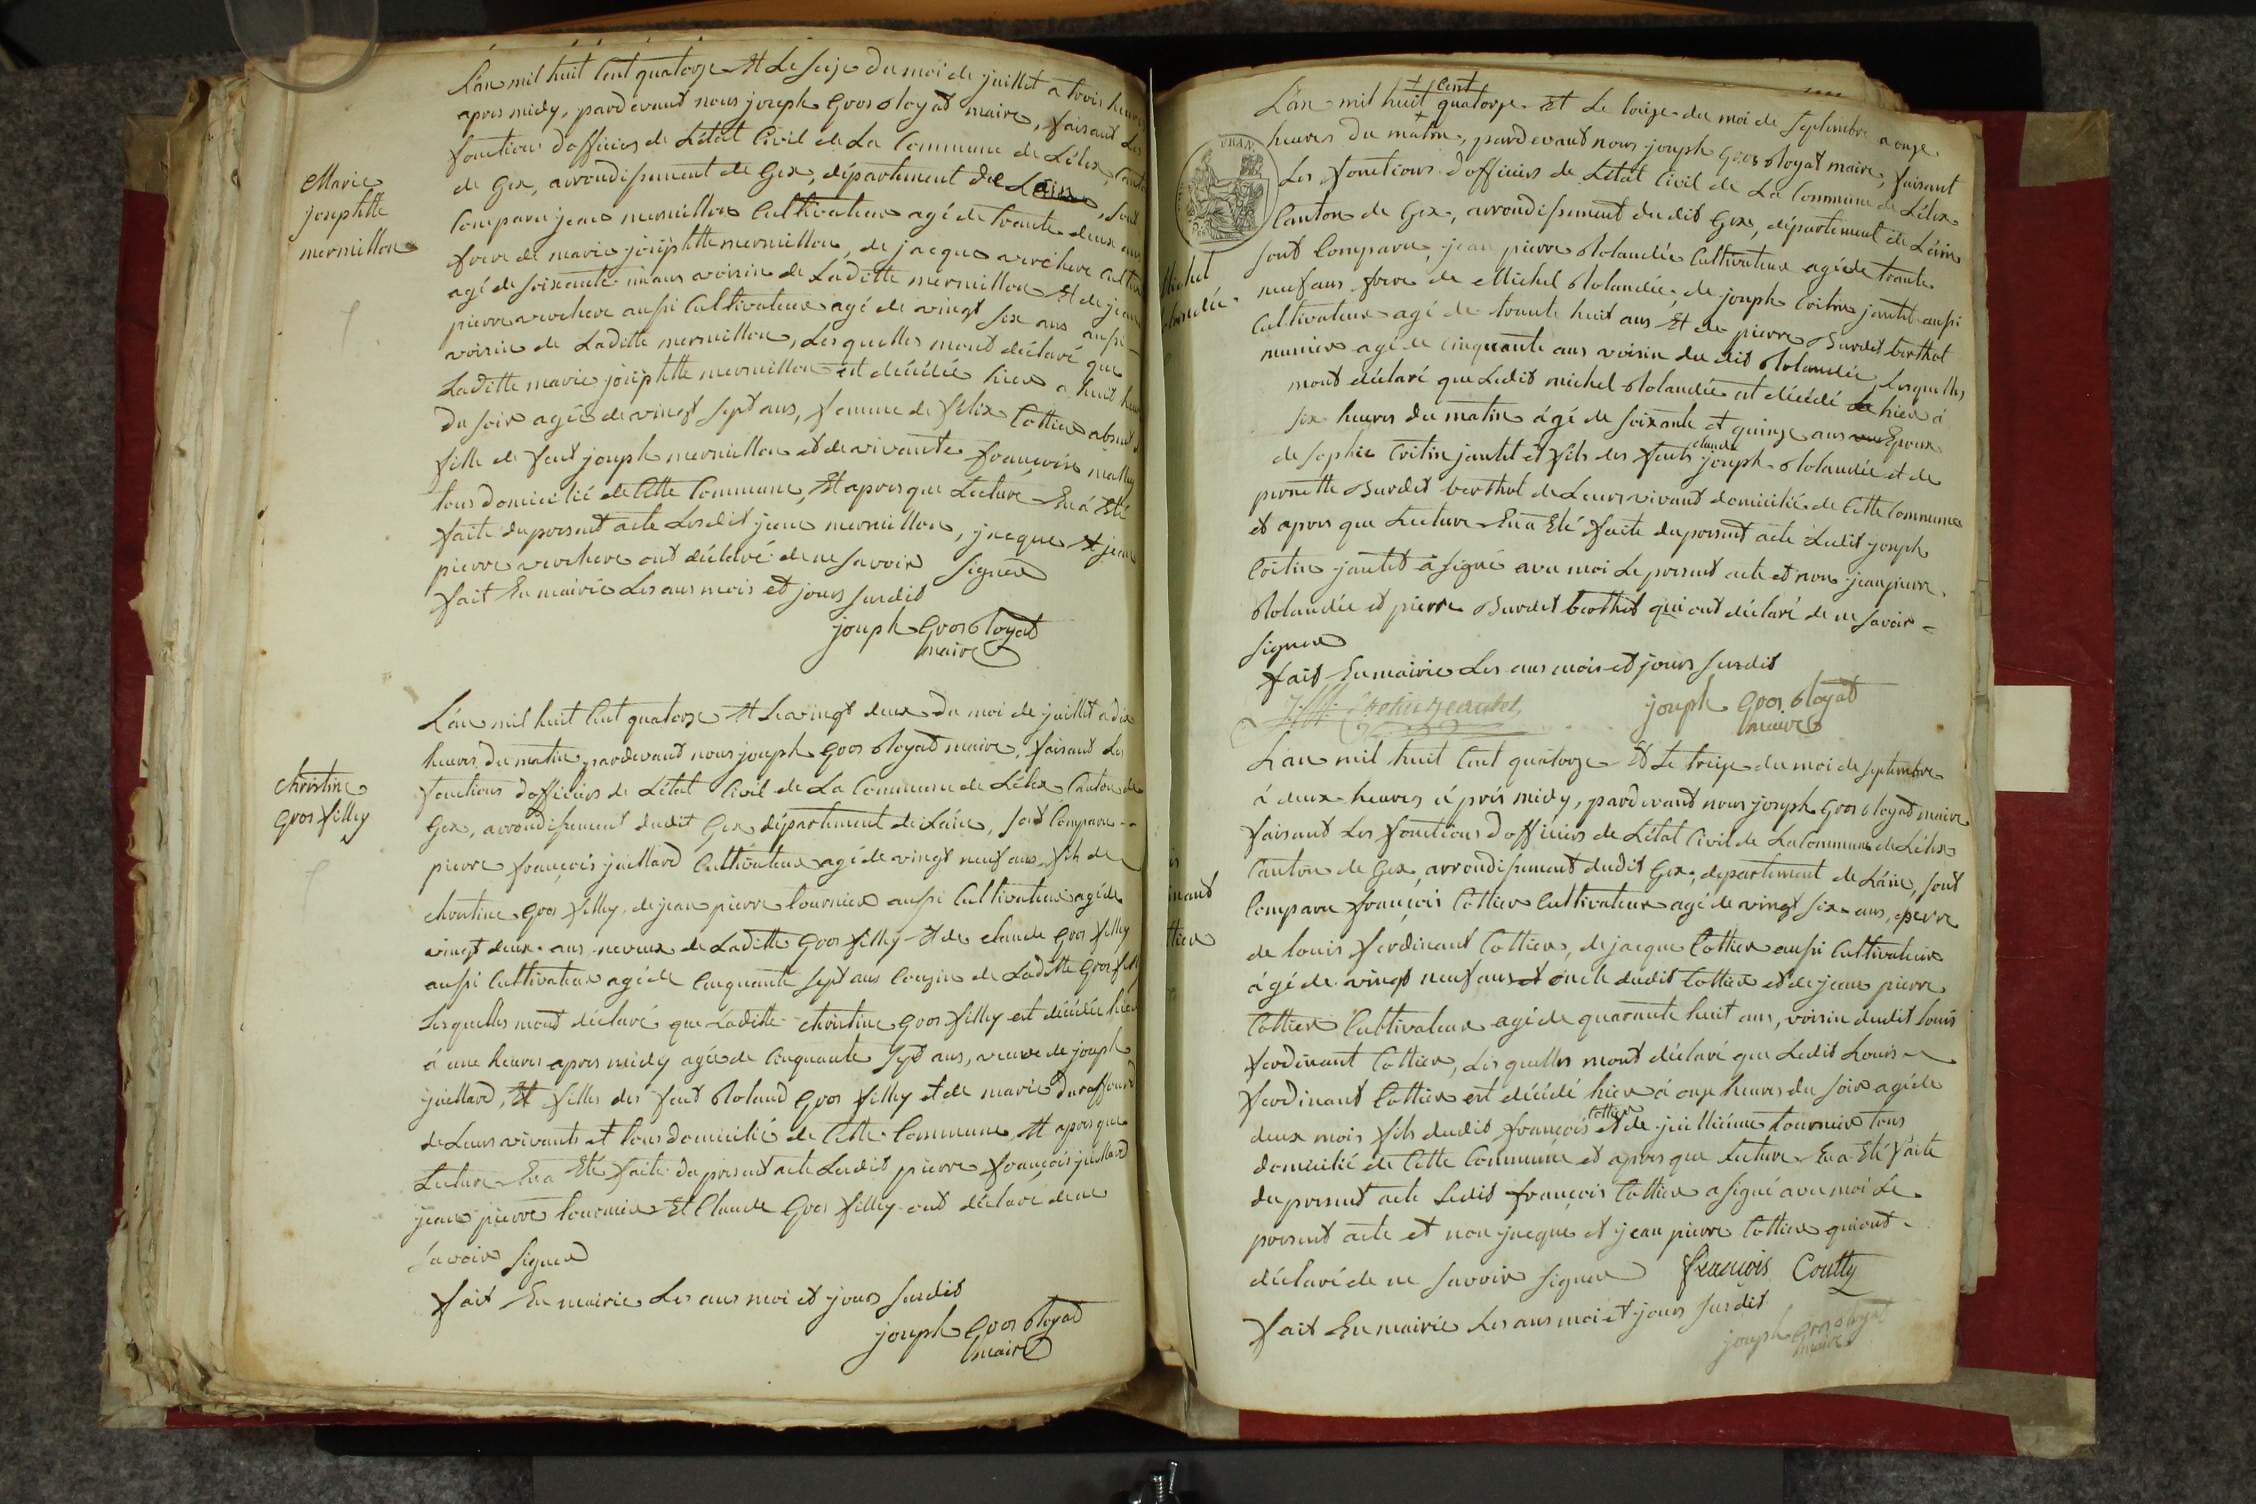 L'an mil huit Cent quatorze Et Le Seize du moi de juillet a trois heures
apres midy, pardevant nous joseph Gros Royat maire, faisant Les
fonctions d'officiers de L'état Civil de La Commune de Lélex, Canton
de Gex, arrondissement de Gex, département de Léain, sont
Marie
josephtte
mermillon
Comparu jean mermillon Cultivateur agé de trante deux ans
frere de marie josephtte mermillon, de jacque verchere Cultiva
agé de soixante ans voisin de Laditte mermillon Et de jean
pierre verchere aussi Cultivateur agé de vingt six ans aussi
voisin de Laditte mermillon, Lesquelles mont déclaré que
Laditte marie josephtte mermillon est décédée hier a huit heures
du soir agée de vingt sept ans, femme de félix Cottier absent
fille de feut joseph mermillon et de vivante françoise
tous domicilié de Cette Commune, Et apres que Lecture En a Eté
faite du present acte Lesdit jean mermillon, jacque Et jean
pierre verchere ont déclaré de ne savoir Signer
fait En mairie Les ans mois et jours susdit
joseph Gros Royat
maire
L'an mil huit Cent quatorze Et Le vingt deux du moi de juillet a dix
heures du matin, pardevant nous joseph Gros Royat maire, faisant Les
christine
Gros filley
fonctions d'officiers de L'état Civil de La Commune de Lélex Canton de
Gex, arrondissement dudit Gex département de Léain, sont Comparu
pierre françois juillard Cultivateur agé de vingt neuf ans fils de
christine Gros filley, de jean pierre tournier aussi Cultivateur agé de
vingt deux ans neveux de Laditte Gros filley Et de claude Gros filley
aussi Cultivateur agé de Cinquante sept ans Couzin de Laditte Gros filley
Lesquelles mont déclaré que Laditte christine Gros filley est décédée hier
à une heures apres midy agée de Cinquante Sept ans, veuve de joseph
juillard, Et filles des feut Roland Gros filley et de marie Duraffourd
de Leurs vivants et tous domicilié de Cette Commune, Et apres que
Lecture En a Eté faite du present acte Lesdit pierre françois juillard
jean pierre tournier Et Claude Gros filley ont déclaré de ne
savoir Signer
fait En mairie Les ans moi et jours susdit
joseph Gros Royat
maire
L'an mil huit Cent quatorze Et Le treize du moi de Septembre a onze
heures du matin, pardevant nous joseph Gros Royat maire, faisant
FRAN
Les fonctions d'officiers de L'état Civil de La Commune de Lélex
Canton de Gex, arrondissement dudit Gex, département de Léain
Michel
Rolandée
sont Comparu, jean pierre Rolandée Cultivateur agé de trante
neuf ans frere de Michel Rolandée, de joseph Coitin jantet aussi
Cultivateur agé de trante huit ans Et de pierre Burdet berthet
munier agé de cinquante ans voisin du dit Rolandée, Lesquelles
mont déclaré que Ledit michel Rolandée est décédé hier à
six heures du matin âgé de soixante et quinze ans Epoux
de sophie Coitin jantet et fils des feuts claude joseph Rolandée et de
pernette Burdet berthet de Leurs vivant domicilié de Cette Commune
et apres que Lecture En a Eté faite du present acte Ledit joseph
Coitin jantet à signé avec moi Le present acte et non jean pierre
Rolandée et pierre Burdet berthet qui ont déclaré de ne savoir
signer
fait En mairie Les ans mois et jours susdit
joseph Gros Royat
maire
L'an mil huit Cent quatorze Et Le treize du moi de septembre
à deux heures à près midy, pardevant nous joseph Gros Royat maire
faisant Les fonctions d'officiers de L'état Civil de La Commune de Lélex
Canton de Gex, arrondissement dudit Gex, departement de Léain, sont
inant
ttier
Comparu françois Cottier Cultivateur agé de vingt six ans, perre
de louis ferdinant Cottier, de jacque Cottier aussi Cultivateur
âgé de vingt neuf ans et oncle dudit Cottier et de jean pierre
Cottier Cultivateur agé de quarante huit ans, voisin dudit louis
ferdinant Cottier, Lesquelles mont déclaré que Ledit Louis
ferdinant Cottier est décédé hier à onze heures du soir agé de
deux mois fils dudit françois Cottier et de juillienne tournier tous
domicilié de Cette Commune et apres que Lecture En a Eté faite
du present acte Ledit françois Cottier a signé avec moi Le
present acte et non jacque et jean pierre Cottier qui ont
déclaré de ne savoir signer françois Coutty
fait En mairie Les ans moi et jours susdit
joseph Gros Royat
maire